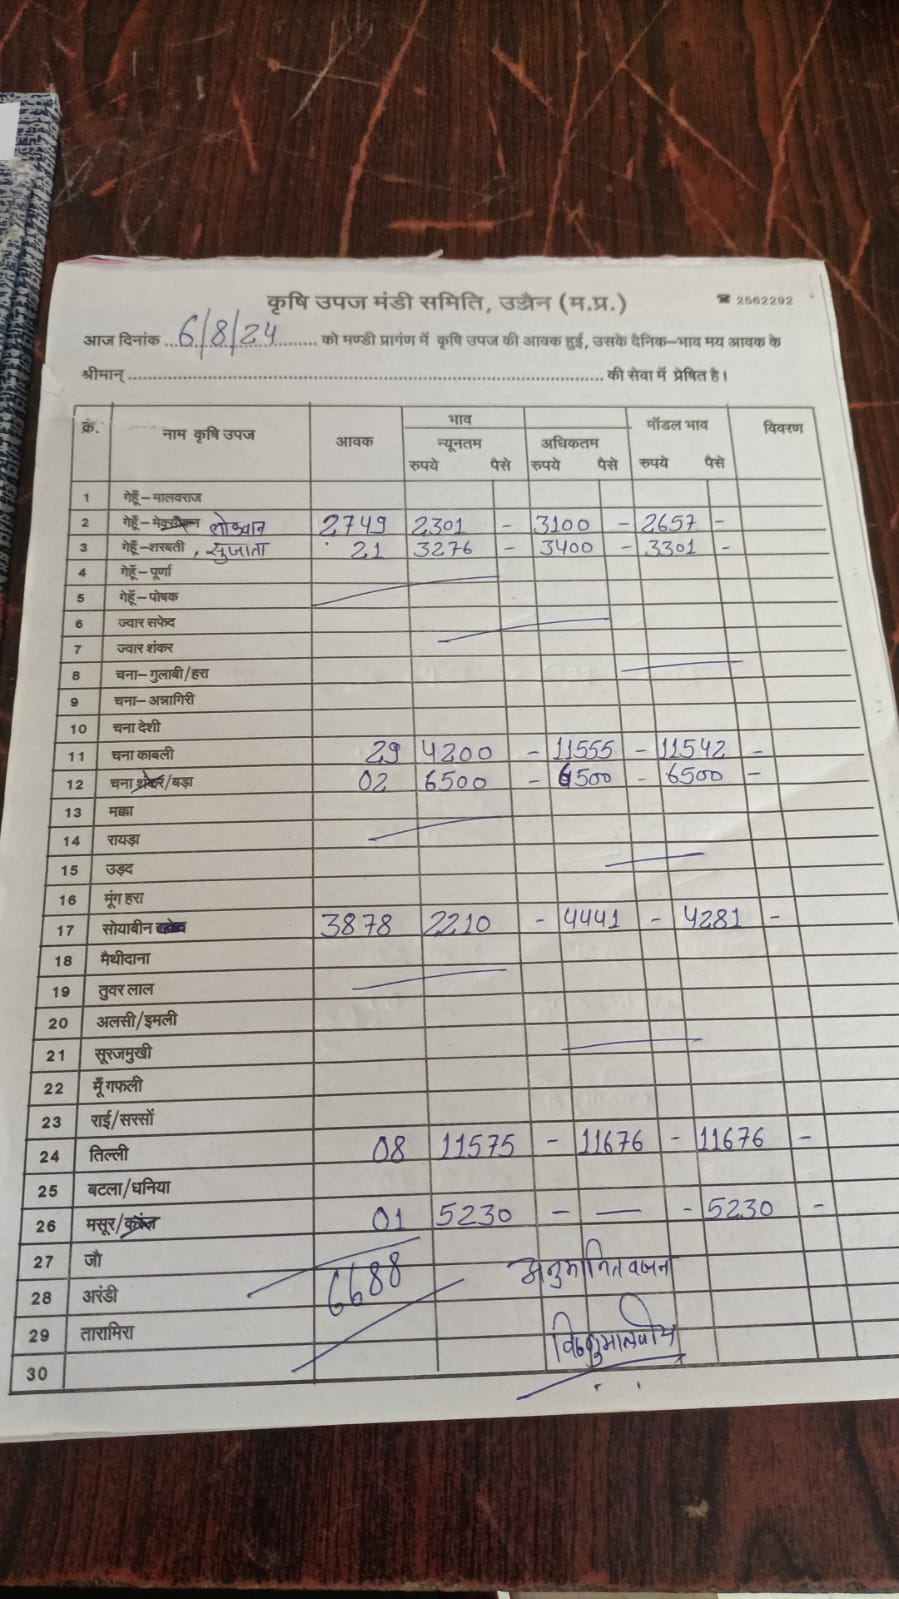 कृषि उपज मंडी समिति, उज्जैन (म.प्र.) ☎ 2562292
आज दिनांक ...6/8/24............ को मण्डी प्रागंण में कृषि उपज की आवक हुई, उसके दैनिक-भाव मय आवक के
श्रीमान् ........................................................................ की सेवा में प्रेषित है।
क्रं. नाम कृषि उपज आवक भाव मॉडल भाव विवरण
न्यूनतम अधिकतम
रुपये पैसे रुपये पैसे रुपये पैसे
1 गेहूँ-मालवराज
2 गेहूँ- लोकवान 2749 2301 - 3100 - 2657 -
3 गेहूँ-शरबती, सुजाता 21 3276 - 3400 - 3301 -
4 गेहूँ-पूर्णा
5 गेहूँ-पोषक
6 ज्वार सफेद
7 ज्वार शंकर
8 चना-गुलाबी/हरा
9 चना-अन्नागिरी
10 चना देशी
11 चना काबली 29 4200 - 11555 - 11542 -
12 चना शंकर/बड़ा 02 6500 - 6500 - 6500 -
13 मक्का
14 रायड़ा
15 उड़द
16 मूंग हरा
17 सोयाबीन 3878 2210 - 4441 - 4281 -
18 मैथीदाना
19 तुवर लाल
20 अलसी/इमली
21 सूरजमुखी
22 मूँगफली
23 राई/सरसों
24 तिल्ली 08 11575 - 11676 - 11676 -
25 बटला/धनिया
26 मसूर/ 01 5230 - — - 5230 -
27 जौ 6688 अनुमानित वजन
28 अरंडी
29 तारामिरा
30